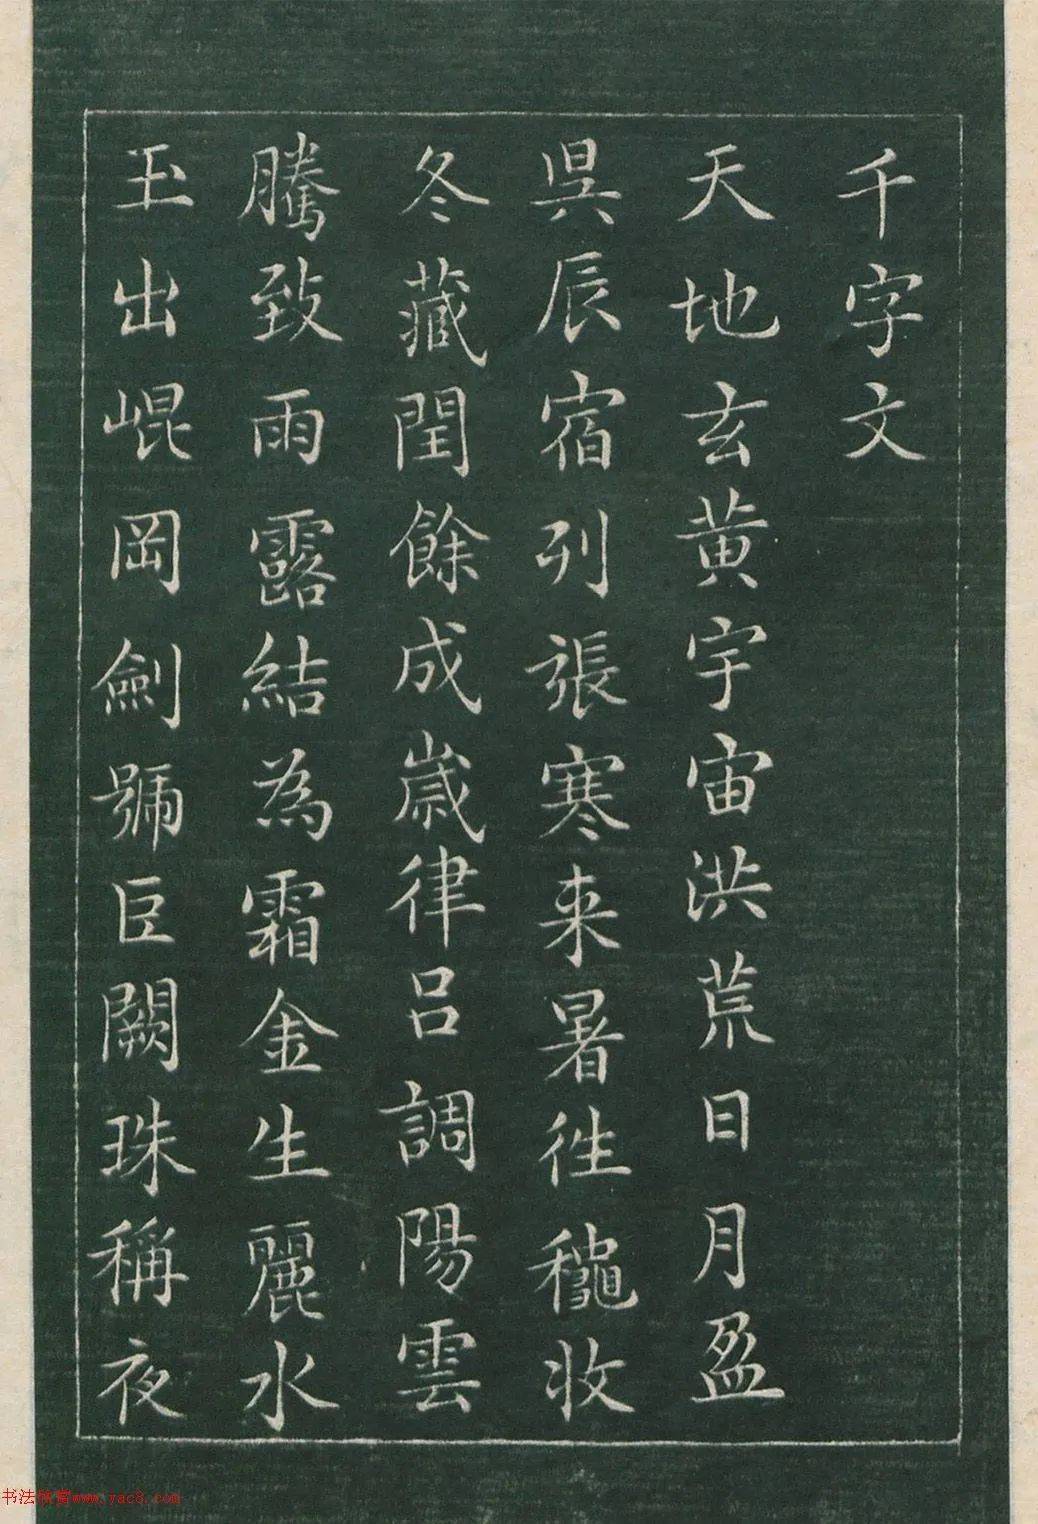 千字文
天地玄黄宇宙洪荒日月盈
昃辰宿列張寒来暑徃穐收
冬藏閏餘成歳律吕調陽雲
騰致雨露結為霜金生麗水
玉出崐岡劍號臣闕珠稱夜
书法欣赏www.yac8.com